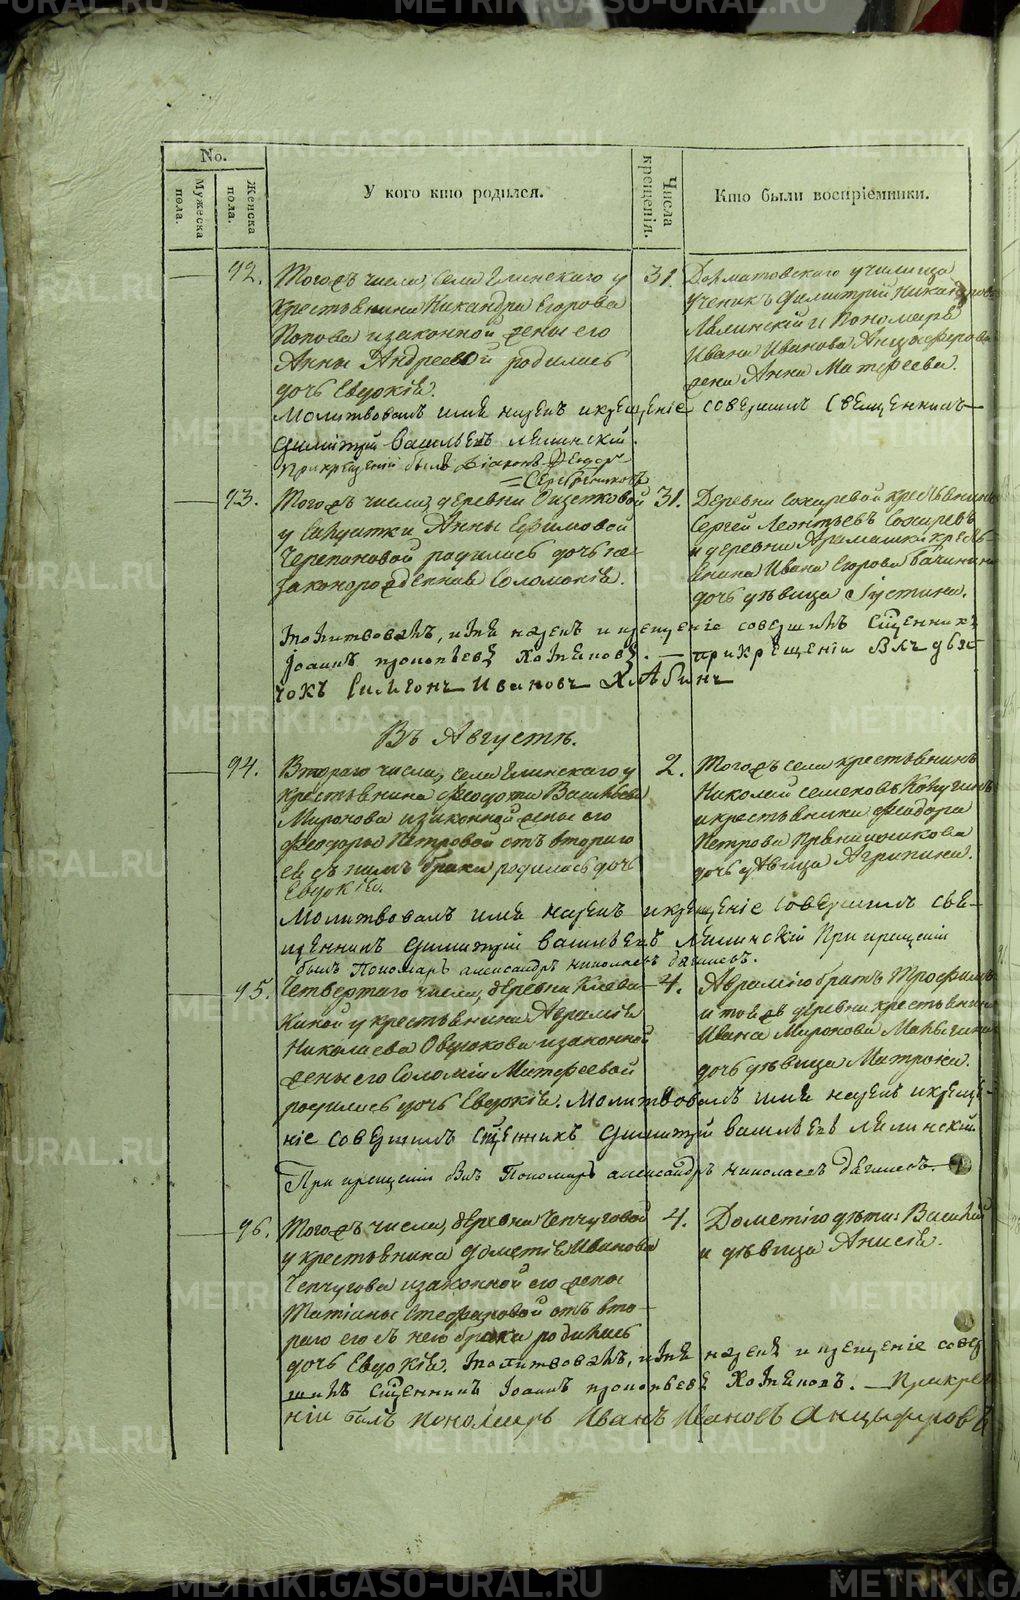 METRIKI.GASO-URAL.RU
No.
Мужеска пола.
Женска пола.
У кого кто родился.
Числа крещенія.
Кто были воспріемники.
92.
Тогожъ числа, села Глинскаго у
крестьянина Никандра Егорова
Попова и законной жены его
Анны Андреевой родилась
дочь Евдокія.
31.
Далматовскаго училища
ученикъ Димитрій Никандровъ
Лялинскій и Пономаря
Ивана Иванова Анцыферова
жена Анна Матфеева.
Молитвовалъ имя нарекъ и крещеніе совершилъ Священникъ
Димитрій Васильевъ Лялинскій.
При крещеніи былъ Діаконъ Федоръ
Серебренниковъ
93.
Тогожъ числа, деревни
у солдатки Анны Ефимовой
Черепановой родилась дочь не-
законнорожденная Соломонія.
31.
Деревни Сохаревой крестьянинъ
Сергей Леонтьевъ Сохаревъ
и деревни Арамашки кресть-
янина Ивана Егорова Бачинина
дочь девица Іустина.
Молитвовалъ, имя нарекъ и крещеніе совершилъ Сщенникъ
Іоаннъ Прокопьевъ Хотяновъ. — При крещеніи былъ дья-
чокъ Симеонъ Ивановъ Хлябинъ
Въ Августѣ.
94.
Втораго числа, села Глинскаго у
крестьянина Феодота Васильева
Миронова и законной жены его
Феодоры Петровой отъ втораго
ея съ нимъ брака родилась дочь
Евдокія.
2.
Тогожъ села крестьянинъ
Николай Семеновъ Кочугинъ
и крестьянина Феодора
Петрова Пряничникова
дочь девица Агрипина.
Молитвовалъ имя нарекъ и крещеніе совершилъ свя-
щенникъ Димитрій Васильевъ Лялинскій При крещеніи
былъ Пономарь Александръ Николаевъ Дягилевъ.
95.
Четвертаго числа, деревни Клева-
киной у крестьянина Аврамія
Николаева Овдокова и законной
жены его Соломіи Матфеевой
родилась дочь Евдокія. Молитвовалъ имя нарекъ и креще-
4.
Аврамію братъ Трофимъ
и тояжъ деревни крестьянина
Ивана Миронова Малыгина
дочь девица Матрона.
ніе совершилъ Сщенникъ Димитрій Васильевъ Лялинскій
При крещеніи былъ Пономарь Александръ Николаевъ Дягилевъ.
96.
Тогожъ числа, деревни Чепчуговой
у крестьянина Дометія Иванова
Чепчугова и законной его жены
Татіаны Стефановой отъ вто-
раго его съ нею брака родилась
дочь Евдокія. Молитвовалъ, имя нарекъ и крещеніе совер-
4.
Дометію дети: Василій
и девица Анисія.
шилъ Сщенникъ Іоаннъ Прокопьевъ Хотяновъ. — При креще
ніи былъ пономарь Иванъ Ивановъ Анцыферовъ